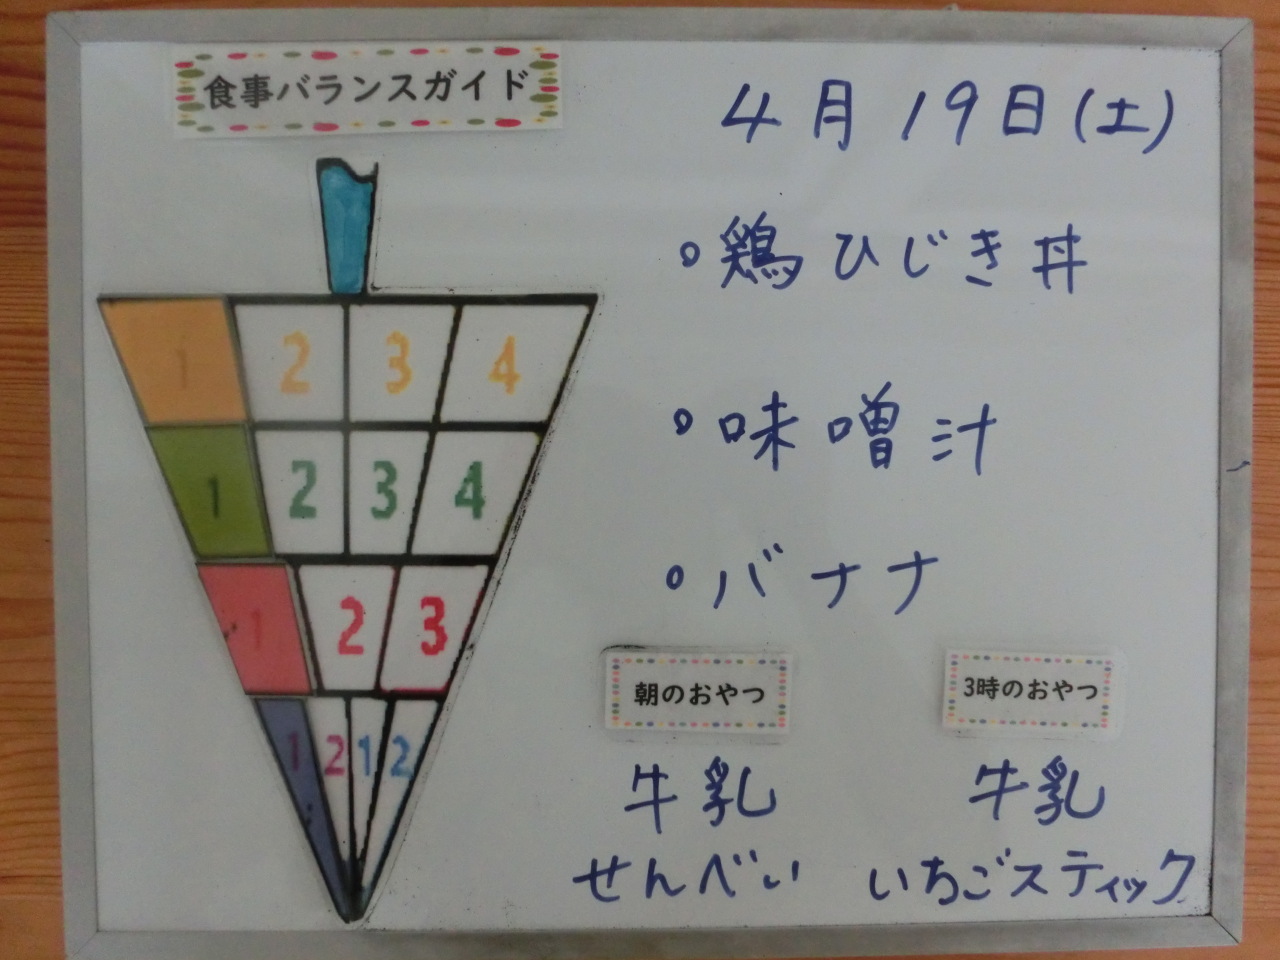 食事バランスガイド
4月19日(土)
・鶏ひじき丼
・味噌汁
・バナナ
1 2 3 4
1 2 3 4
1 2 3
1 2 1 2
朝のおやつ
牛乳
せんべい
3時のおやつ
牛乳
いちごスティック